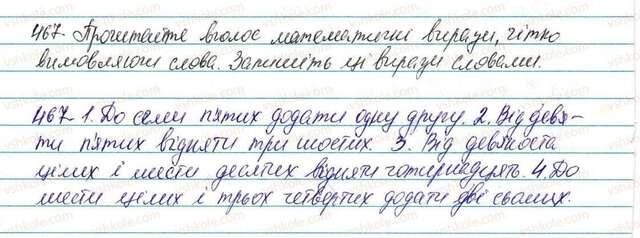 467. Прочитайте вголос математичні вирази, чітко
вимовляючи слова. Запишіть ці вирази словами.
467 1. До семи п'ятих додати одну другу. 2. Від дев'я-
ти п'ятих відняти три шостих. 3. Від дев'яноста
цілих і шести десятих відняти чотирнадцять. 4. До
шести цілих і трьох четвертих додати дві сьомих.